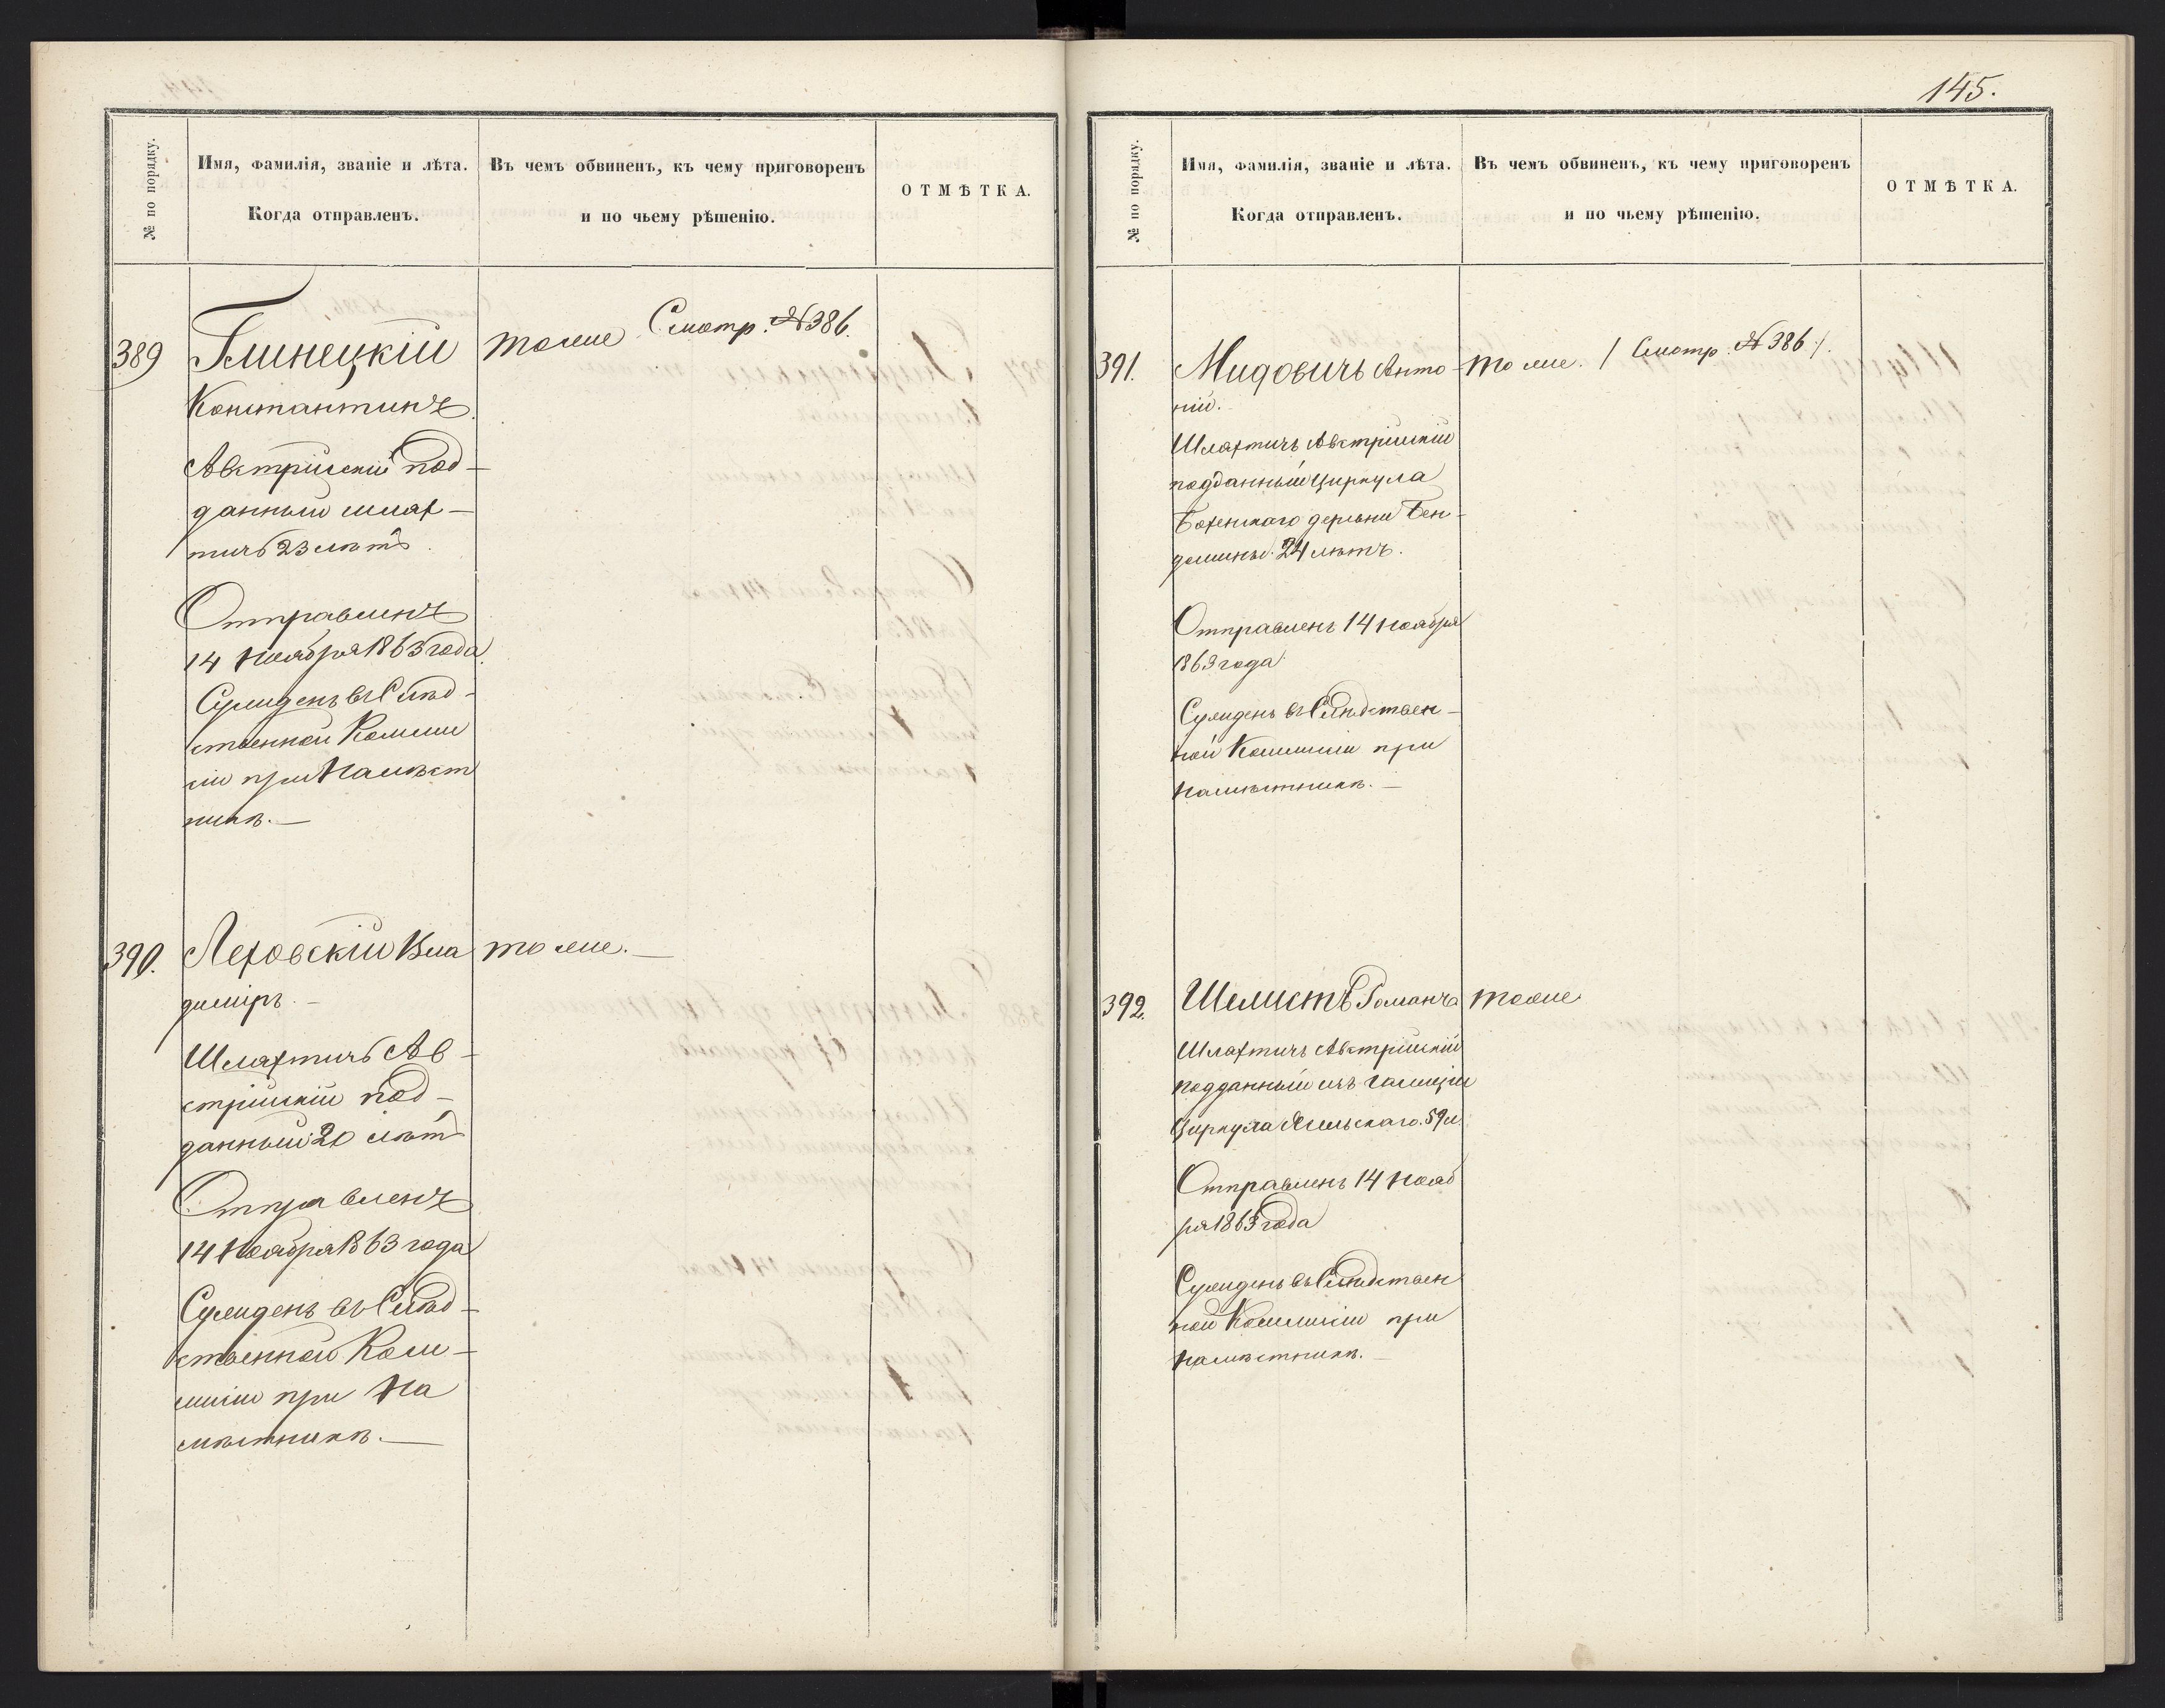 № по порядку.
Имя, фамилія, званіе и лѣта.
Когда отправленъ.
Въ чемъ обвиненъ, къ чему приговоренъ
и по чьему рѣшенію.
ОТМѢТКА.
389
Глинецкій
Константинъ.
Австрійскій под-
данный шлях-
тичъ 23 лѣтъ.
Отправленъ
14 Ноября 1863 года.
Сужденъ въ Слѣд-
ственной Комми
сіи при Намѣст
никѣ.—
тоже Смотр. № 386.
390.
Леховскій Вла
диміръ.—
Шляхтичъ Ав-
стрійскій под-
данный 20 лѣтъ
Отправленъ
14 Ноября 1863 года
Сужденъ въ Слѣд-
ственной Ком-
мисіи при На
мѣстникѣ.—
тоже.—
145.
№ по порядку.
Имя, фамилія, званіе и лѣта.
Когда отправленъ.
Въ чемъ обвиненъ, къ чему приговоренъ
и по чьему рѣшенію.
ОТМѢТКА.
391.
Мидовичъ Анто-
ній.
Шляхтичъ Австрійскій
подданный Циркула
Бохенскаго деревни
24 лѣтъ.
Отправленъ 14 ноября
1863 года
Сужденъ въ Слѣдствен-
ной Коммисіи при
Намѣстникѣ.—
тоже. / Смотр. № 386 /.
392.
Шелистъ Романъ
Шляхтичъ Австрійскій
подданный изъ Галиціи
Циркула Ясельскаго. 59 л.
Отправленъ 14 Нояб
ря 1863 года
Сужденъ въ Слѣдствен
ной Коммисіи при
Намѣстникѣ.—
тоже